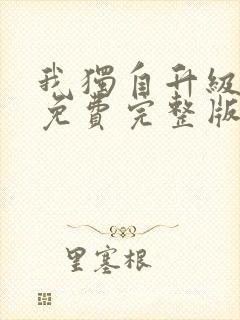 我獨自升級
免費完整版
里塞根